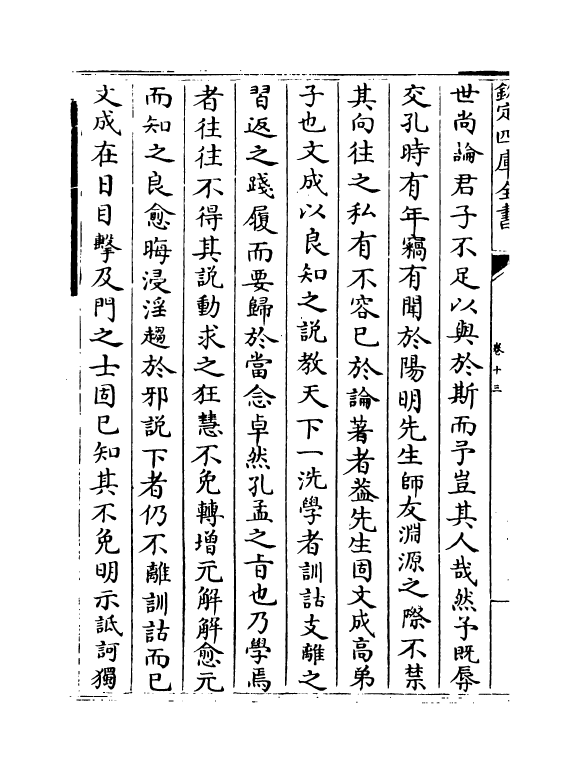 欽定四庫全書
卷十三
世尚論君子不足以與於斯而予豈其人哉然予既辱
交孔時有年竊有聞於陽明先生師友淵源之際不禁
其向往之私有不容已於論著者葢先生固文成高弟
子也文成以良知之說教天下一洗學者訓詁支離之
習返之踐履而要歸於當念卓然孔孟之旨也乃學焉
者往往不得其說動求之狂慧不免轉增元解解愈元
而知之良愈晦浸淫趨於邪說下者仍不離訓詁而已
文成在日目擊及門之士固已知其不免明示詆訶獨